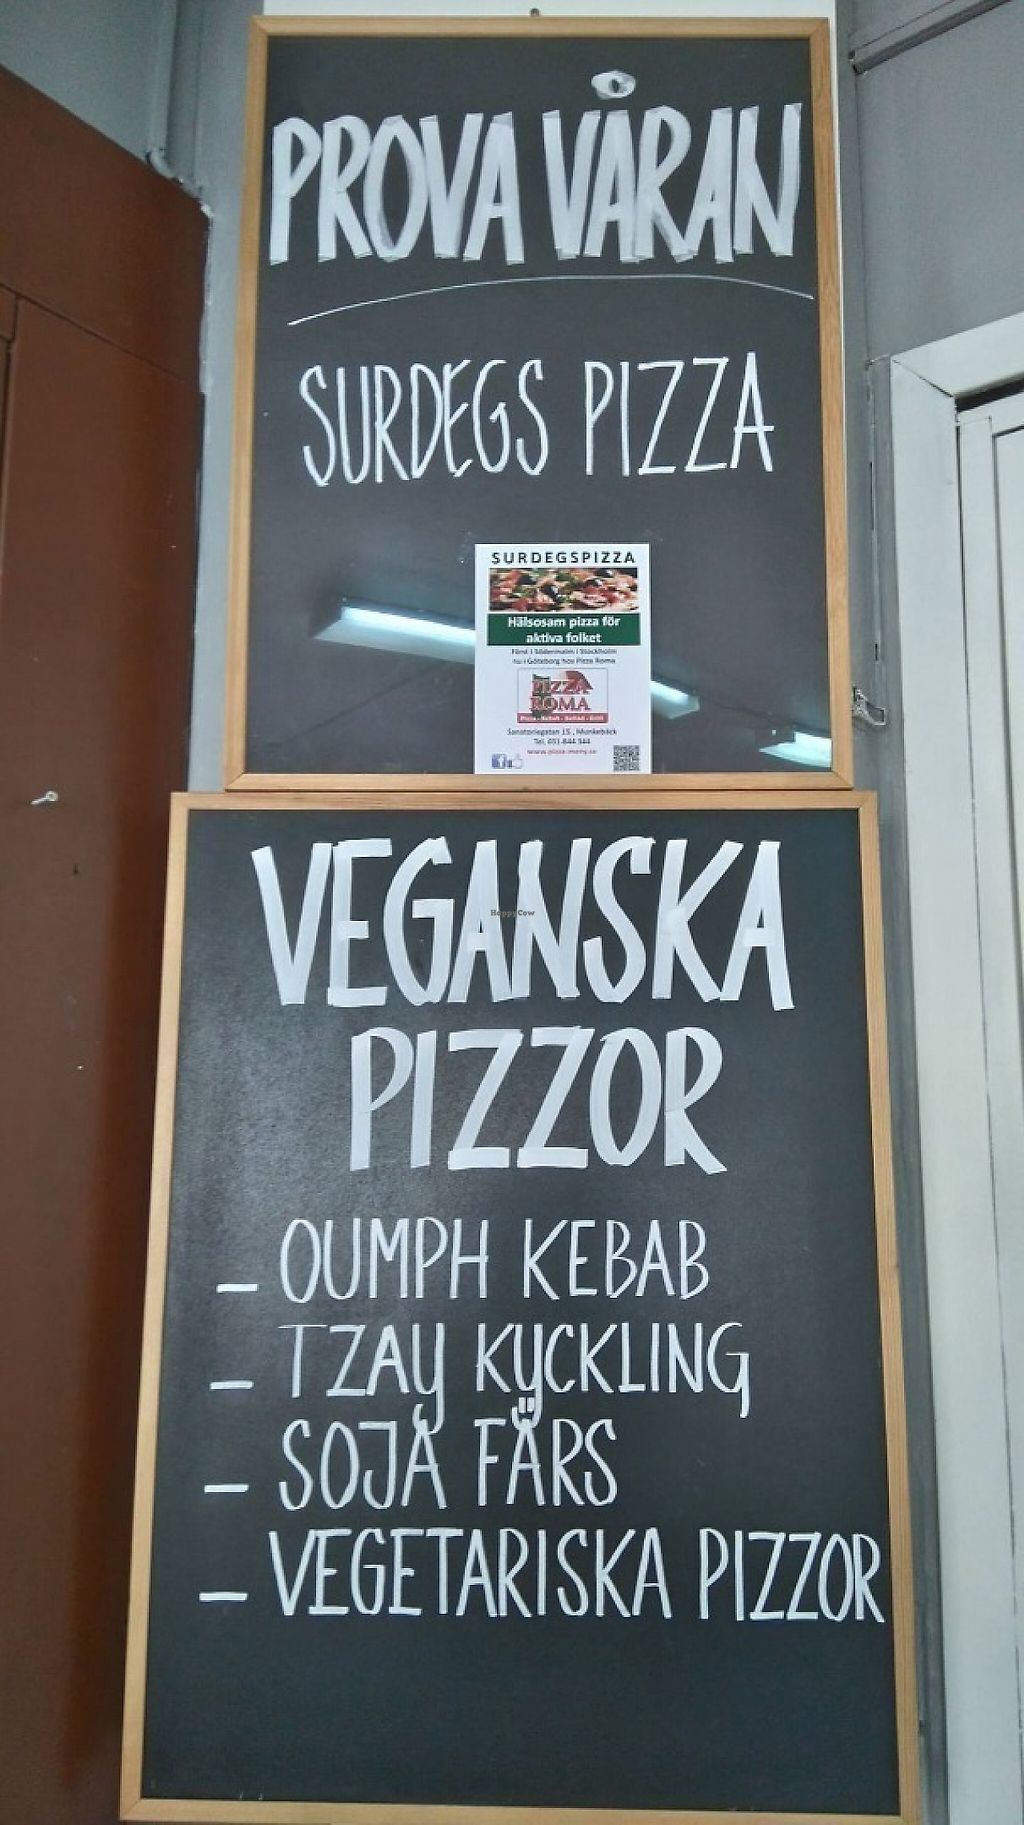 PROVA VÅRAN
SURDEGS PIZZA
SURDEGSPIZZA
Hälsosam pizza för
aktiva folket
Först i Södermalm i Stockholm
nu i Göteborg hos Pizza Roma
PIZZA
ROMA
Pizza - Kebab - Sallad - Grill
Sanatoriegatan 15 , Munkebäck
Tel. 031-844 344
VEGANSKA
HappyCow
PIZZOR
- OUMPH KEBAB
- TZAY KYCKLING
- SOJA FÄRS
- VEGETARISKA PIZZOR